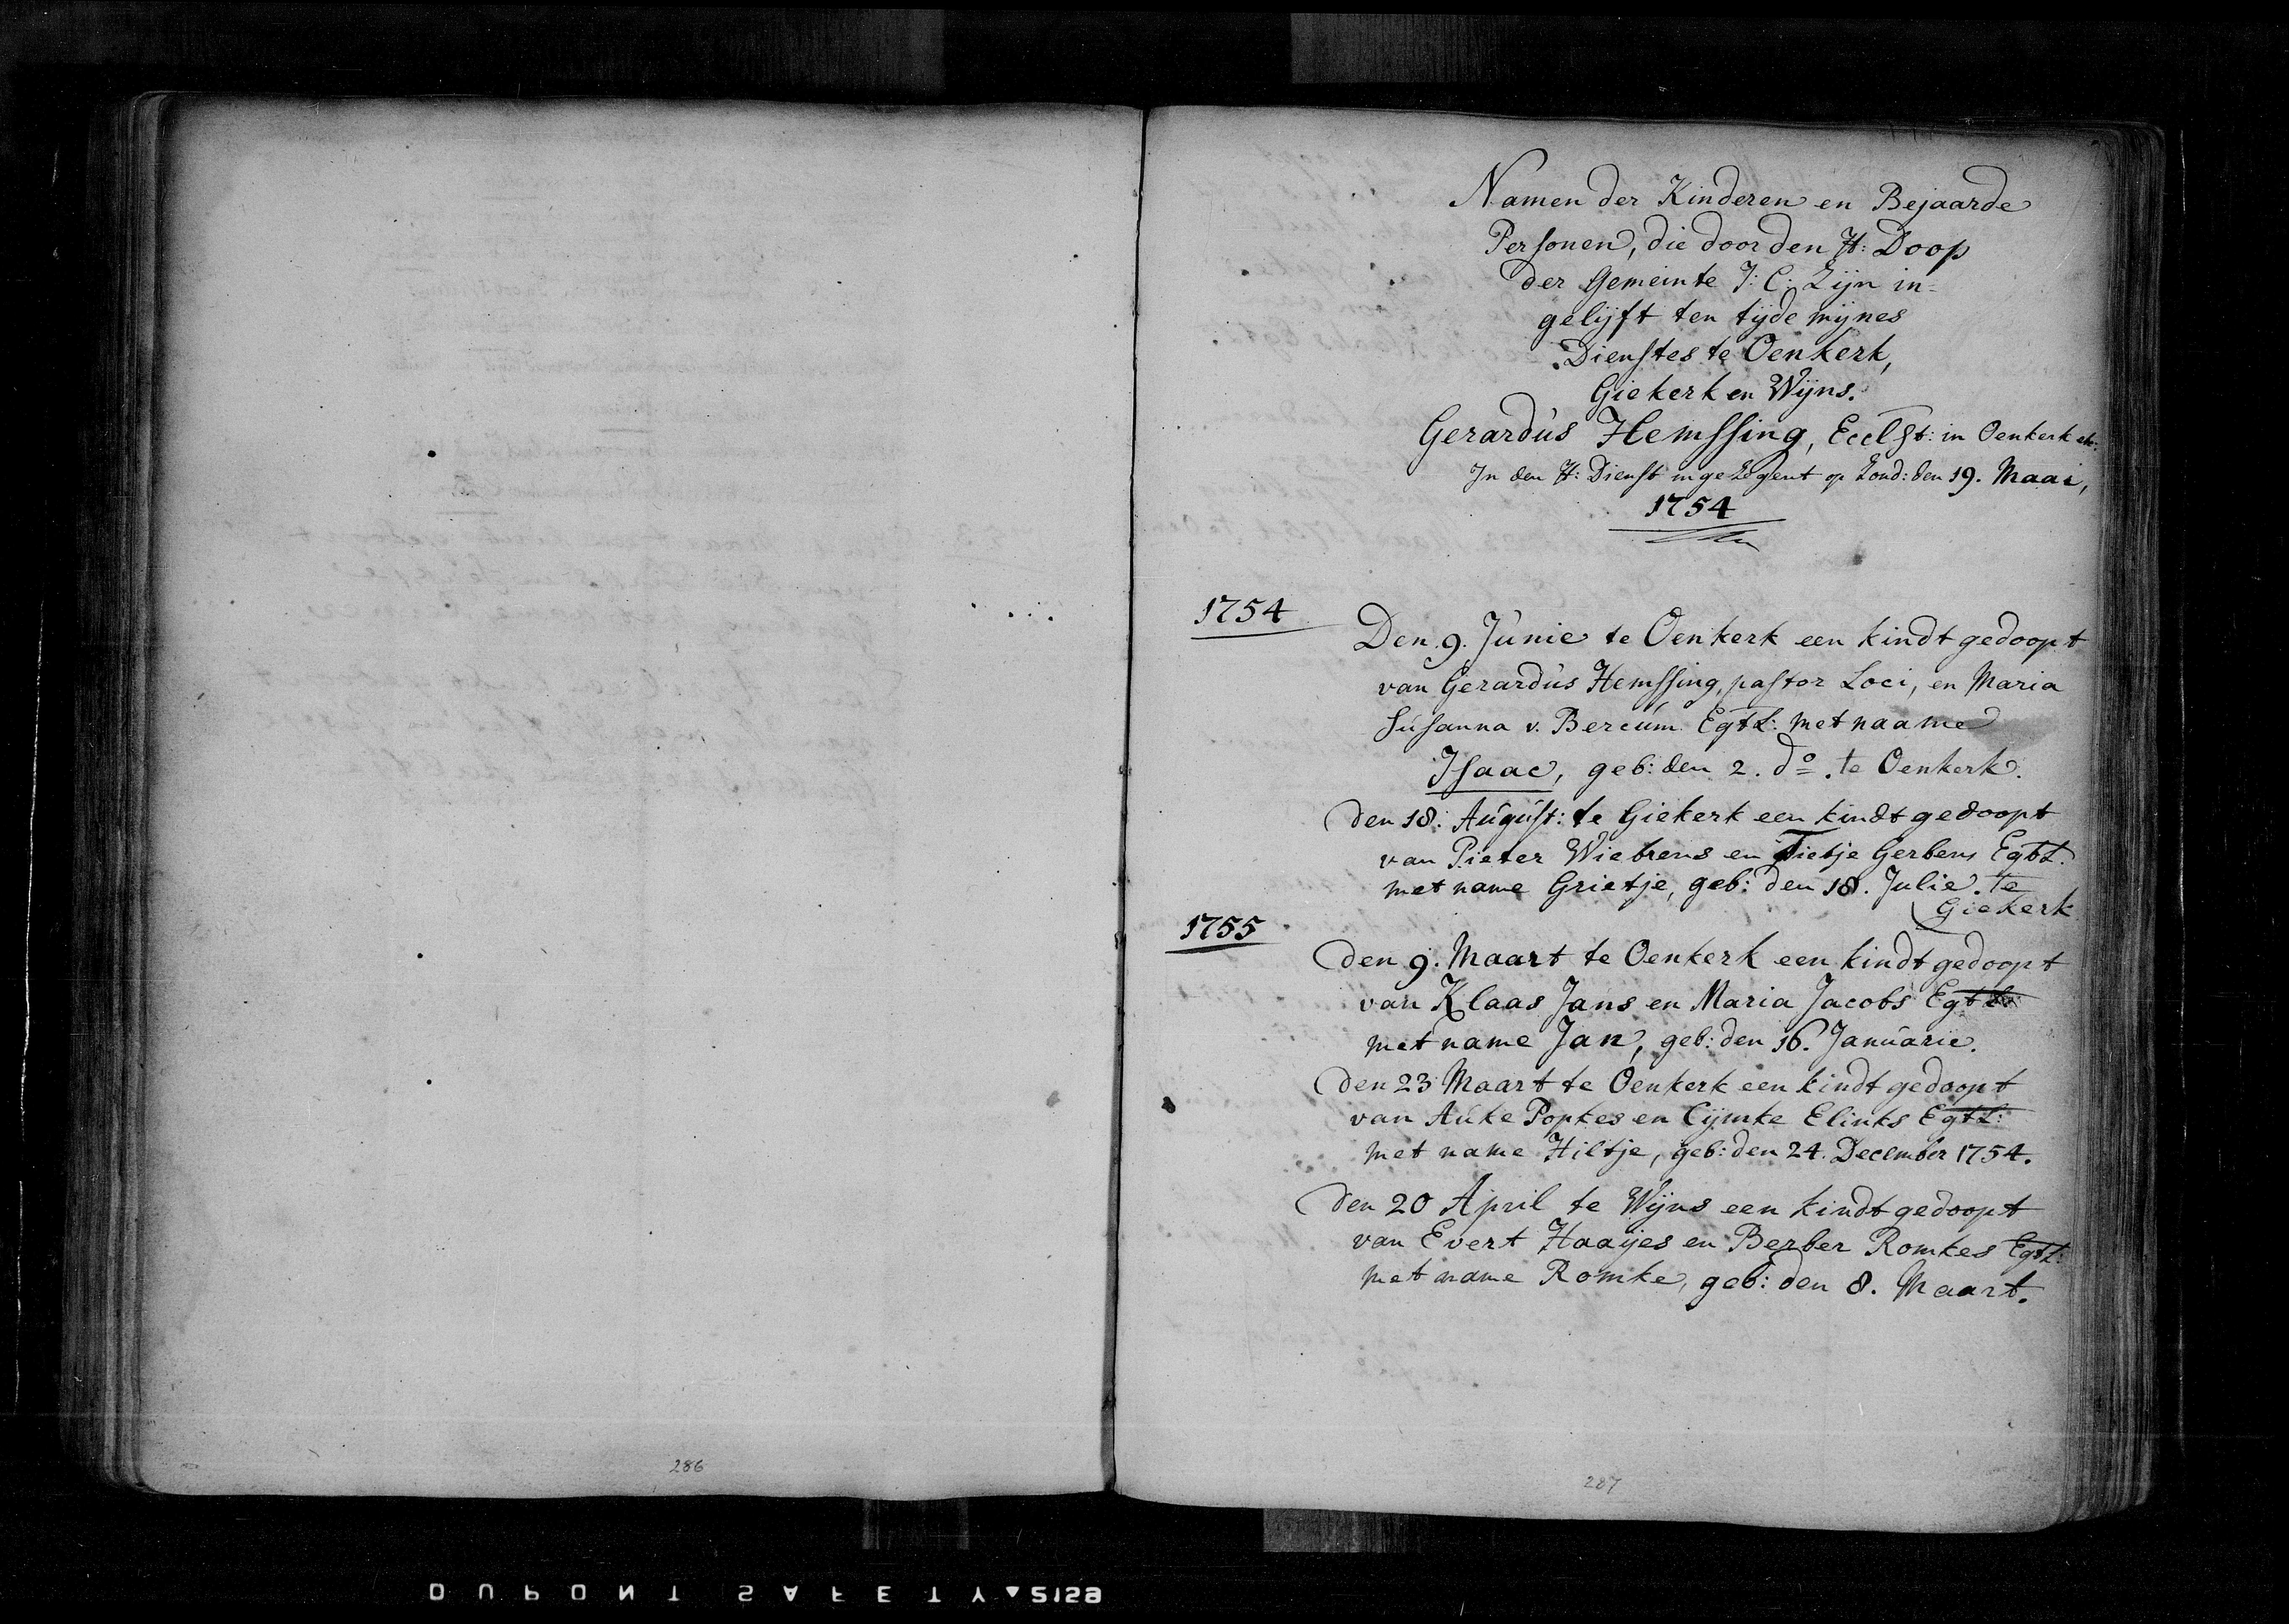 Namen der Kinderen en Bejaarde
Personen, die door den H: Doop
der Gemeinte J: C: Zijn in=
gelijft ten tijde mijnes
Dienstes te Oenkerk,
Giekerk en Wijns.
Gerardus Hemssing, Eccl§t: in Oenkerk etc:
In den H: Dienst ingezegent op Zond: den 19. Maai,
1754
1754
Den 9. Junie te Oenkerk een kindt gedoopt
van Gerardus Hemssing, pastor Loci, en Maria
Susanna v. Bercum Egtl: met naame
Isaac, geb: den 2. do. te Oenkerk.
den 18: August: te Giekerk een kindt gedoopt
van Pieter Wiebrens en Tietje Gerbens Egtl.
met name Grietje, geb: den 18. Julie. te
Giekerk
1755
den 9. Maart te Oenkerk een kindt gedoopt
van Klaas Jans en Maria Jacobs Egtl:
met name Jan, geb: den 16. Januarie.
den 23 Maart te Oenkerk een kindt gedoopt
van Auke Popkes en Cijmke Elinks Egtl:
met name Hiltje, geb: den 24. December 1754.
den 20 April te Wijns een kindt gedoopt
van Evert Haaijes en Berber Romkes Egtl:
met name Romke, geb: den 8. Maart.
286
287
DUPONT SAFETY 5129